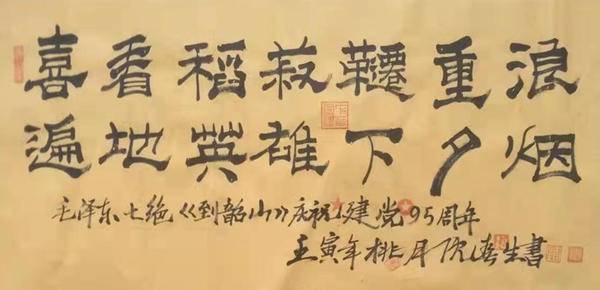 喜看稻菽韆重浪
遍地英雄下夕烟
毛泽东七绝《到韶山》庆祝建党95周年
壬寅年桃月生書